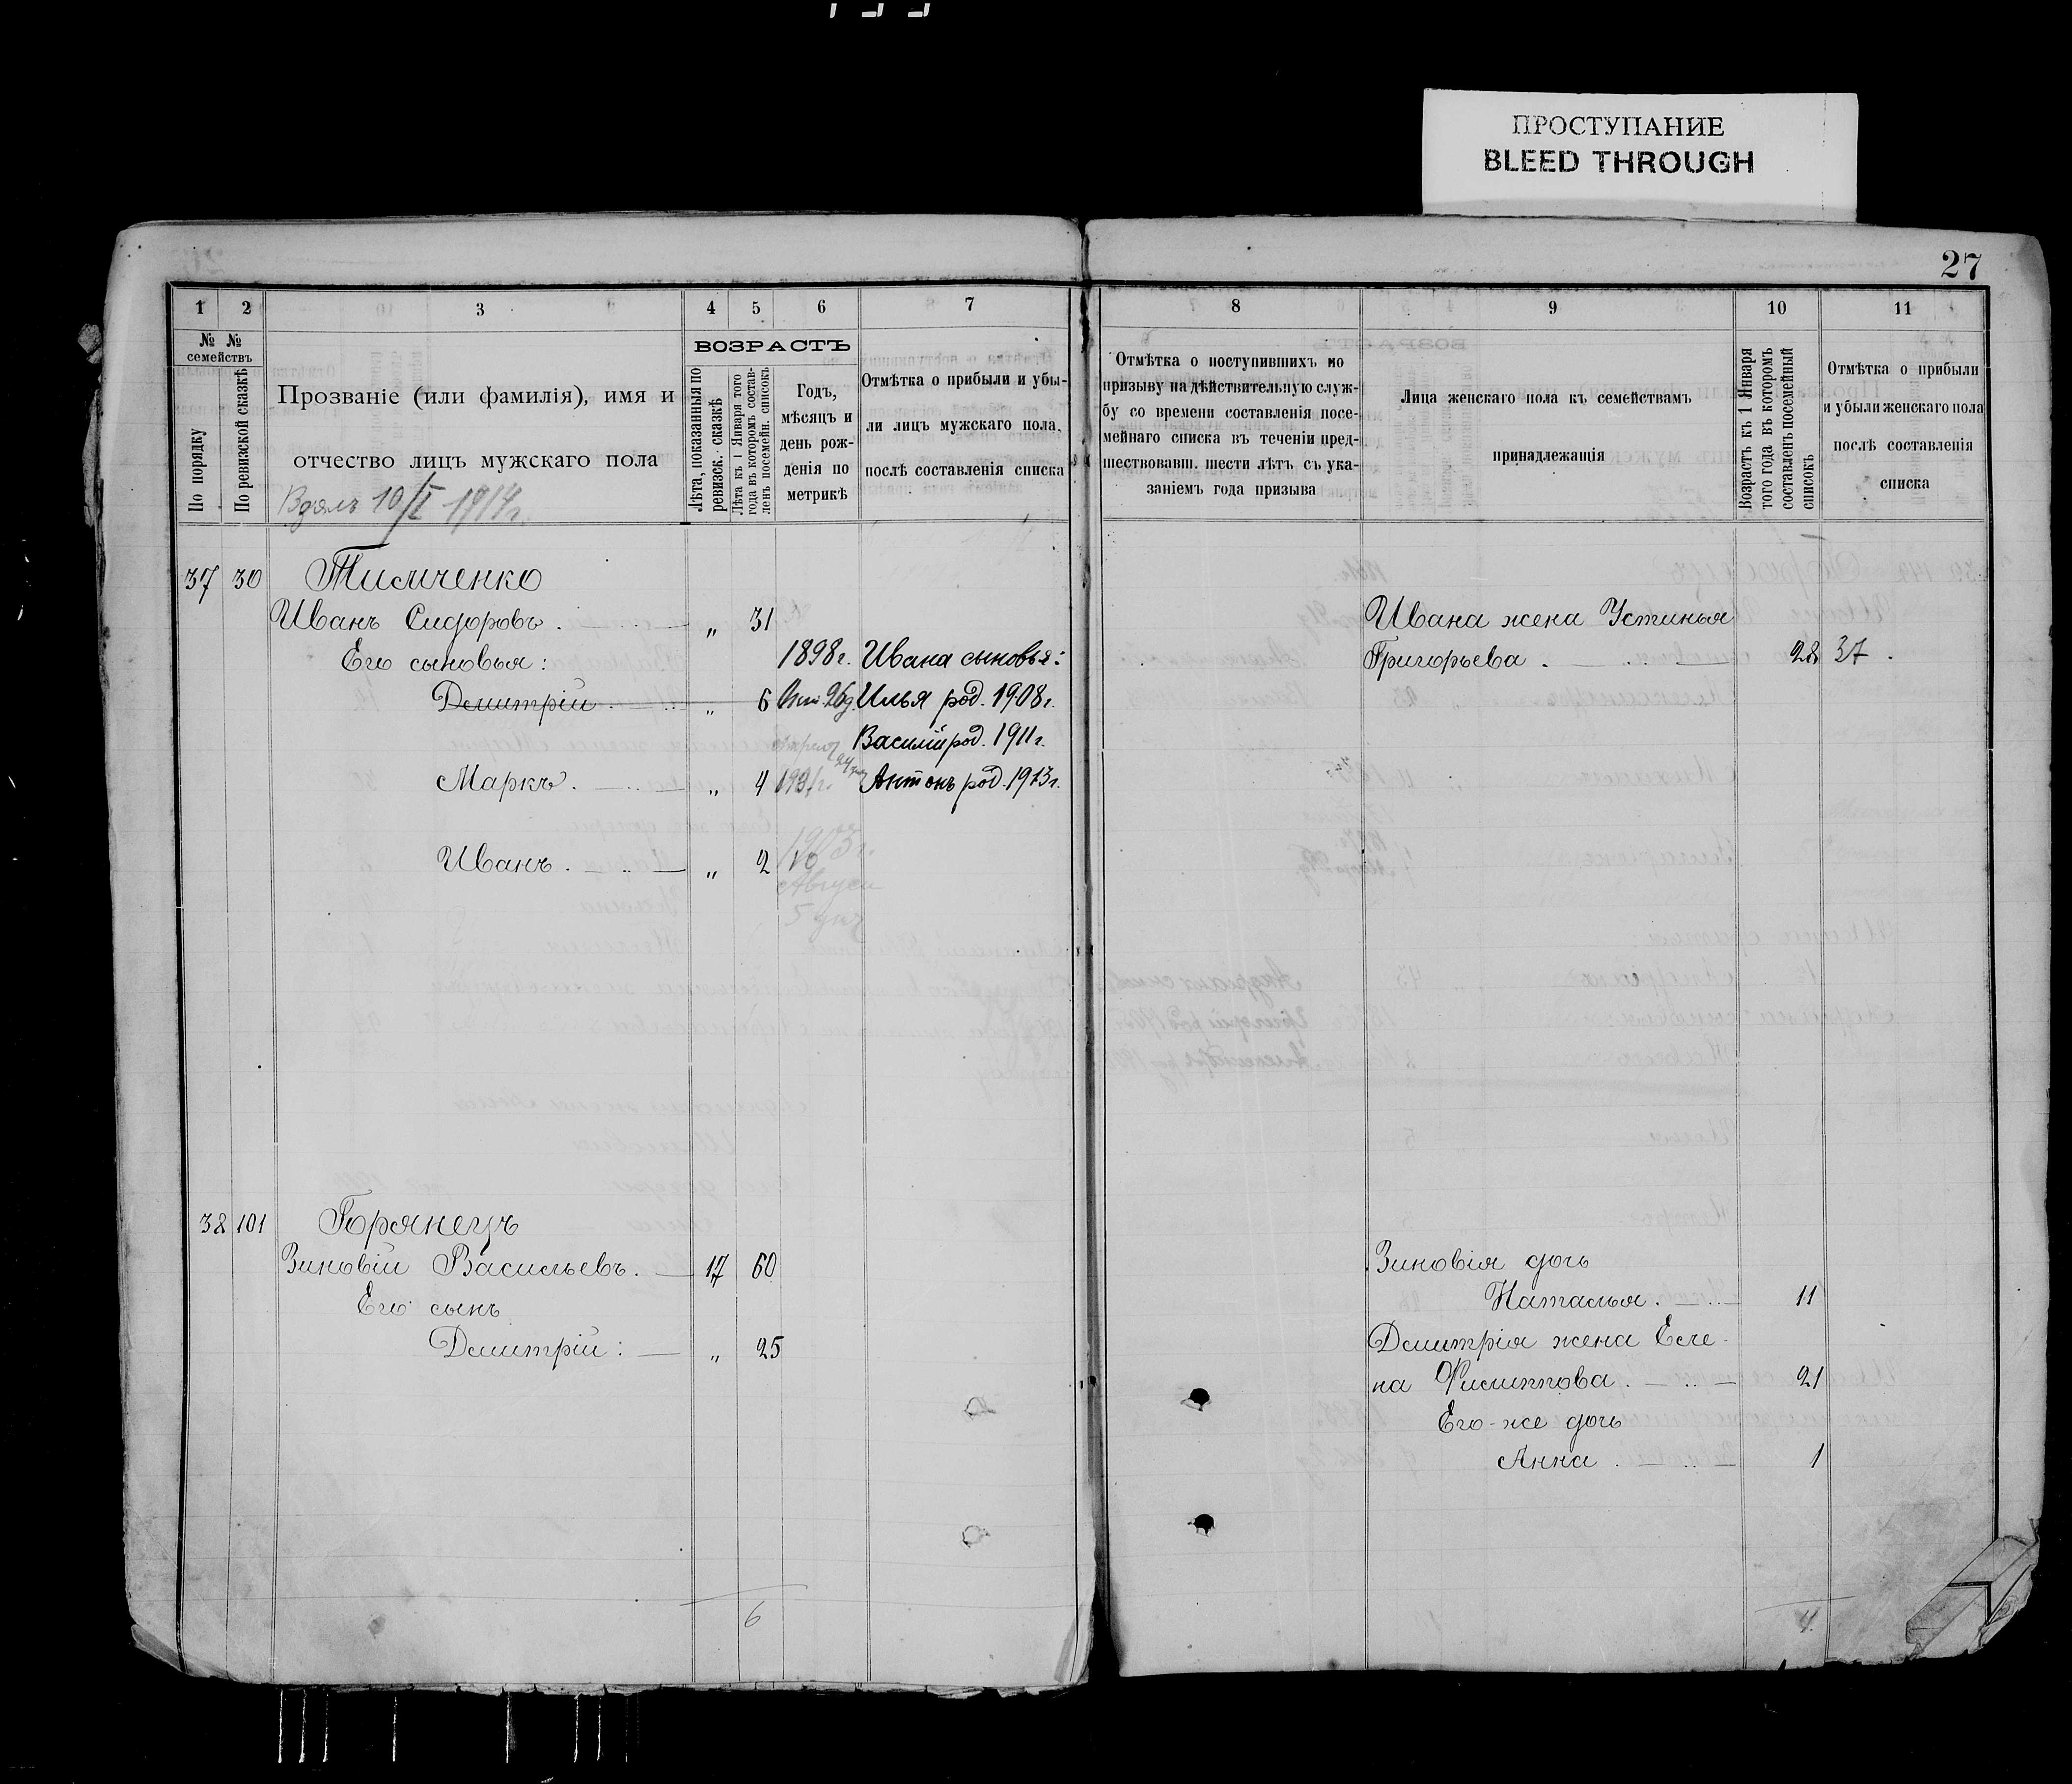 ПРОСТУПАНИЕ
BLEED THROUGH
27
1 2 3 4 5 6 7
№ № семействъ
По порядку
По ревизской сказкѣ
Прозваніе (или фамилія), имя и
отчество лицъ мужскаго пола
10/I 1914г.
ВОЗРАСТЪ
Лѣта, показанныя по ревизск. сказкѣ
Лѣта къ 1 Января того года въ которомъ составленъ посемейн. списокъ
Годъ,
мѣсяцъ и
день рож-
денія по
метрикѣ
Отмѣтка о прибыли и убы-
ли лицъ мужскаго пола,
послѣ составленія списка
37 30 Тимченко
Иванъ Сидоровъ. „ 31
Его сыновья: 1898г. Ивана сыновья:
Демитрій „ 6 Окт. 26д. Илья род. 1908г.
Василій род. 1911г.
Маркъ. „ 4 Антонъ род. 1913г.
1903г.
Иванъ. „ 2
Август
5 дня
38 101 Горянецъ
Зиновій Васильевъ. 17 60
Его сынъ
Демитрій: „ 25
6
8 9 10 11
Отмѣтка о поступившихъ по
призыву на дѣйствительную служ-
бу со времени составленія посе-
мейнаго списка въ теченіи пред-
шествовавш. шести лѣтъ съ ука-
заніемъ года призыва
Лица женскаго пола къ семействамъ
принадлежащія
Возрастъ къ 1 Января
того года въ которомъ
составленъ посемейный
списокъ
Отмѣтка о прибыли
и убыли женскаго пола
послѣ составленія
списка
Ивана жена Устинья
Григорьева. 28 37.
Зиновія дочь
Наталья. 11
Демитрія жена Еле-
на Филиппова. 21
Его-же дочь
Анна. 1
4.